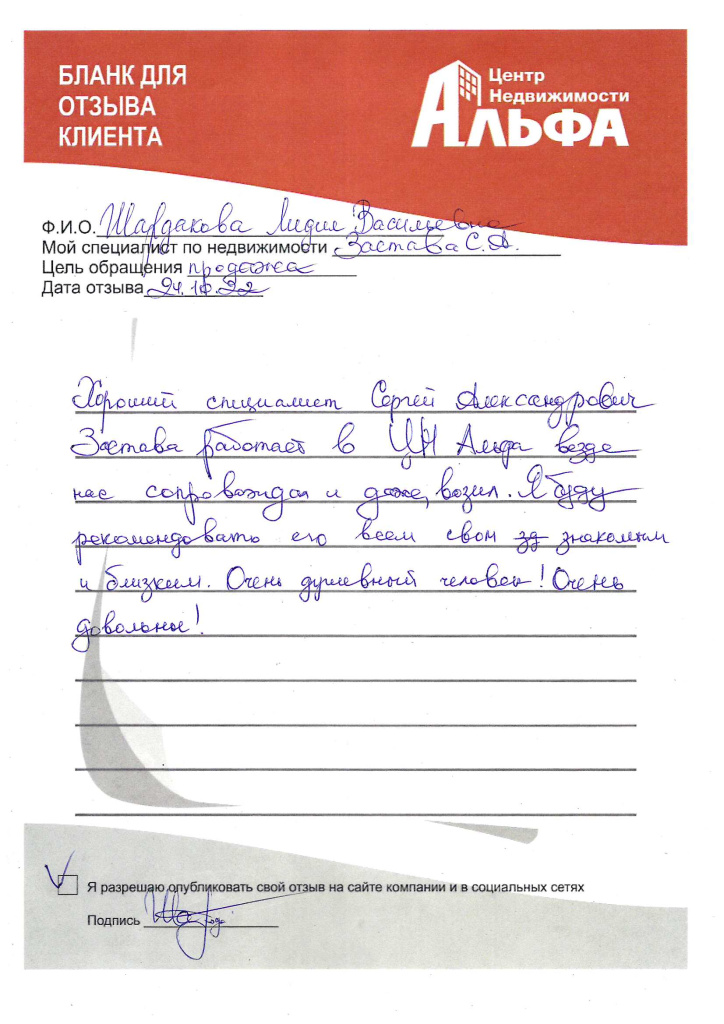 БЛАНК ДЛЯ
ОТЗЫВА
КЛИЕНТА
Центр
Недвижимости
АЛЬФА
Ф.И.О. Шардакова Лидия Васильевна
Мой специалист по недвижимости Застава С.А.
Цель обращения продажа
Дата отзыва 24.10.22
Хороший специалист Сергей Александрович
Застава работает в ЦН Альфа везде
нас сопровождал и даже возил. Я буду
рекомендовать его всем свом знакомым
и близким. Очень душевный человек! Очень
довольны!
Я разрешаю опубликовать свой отзыв на сайте компании и в социальных сетях
Подпись